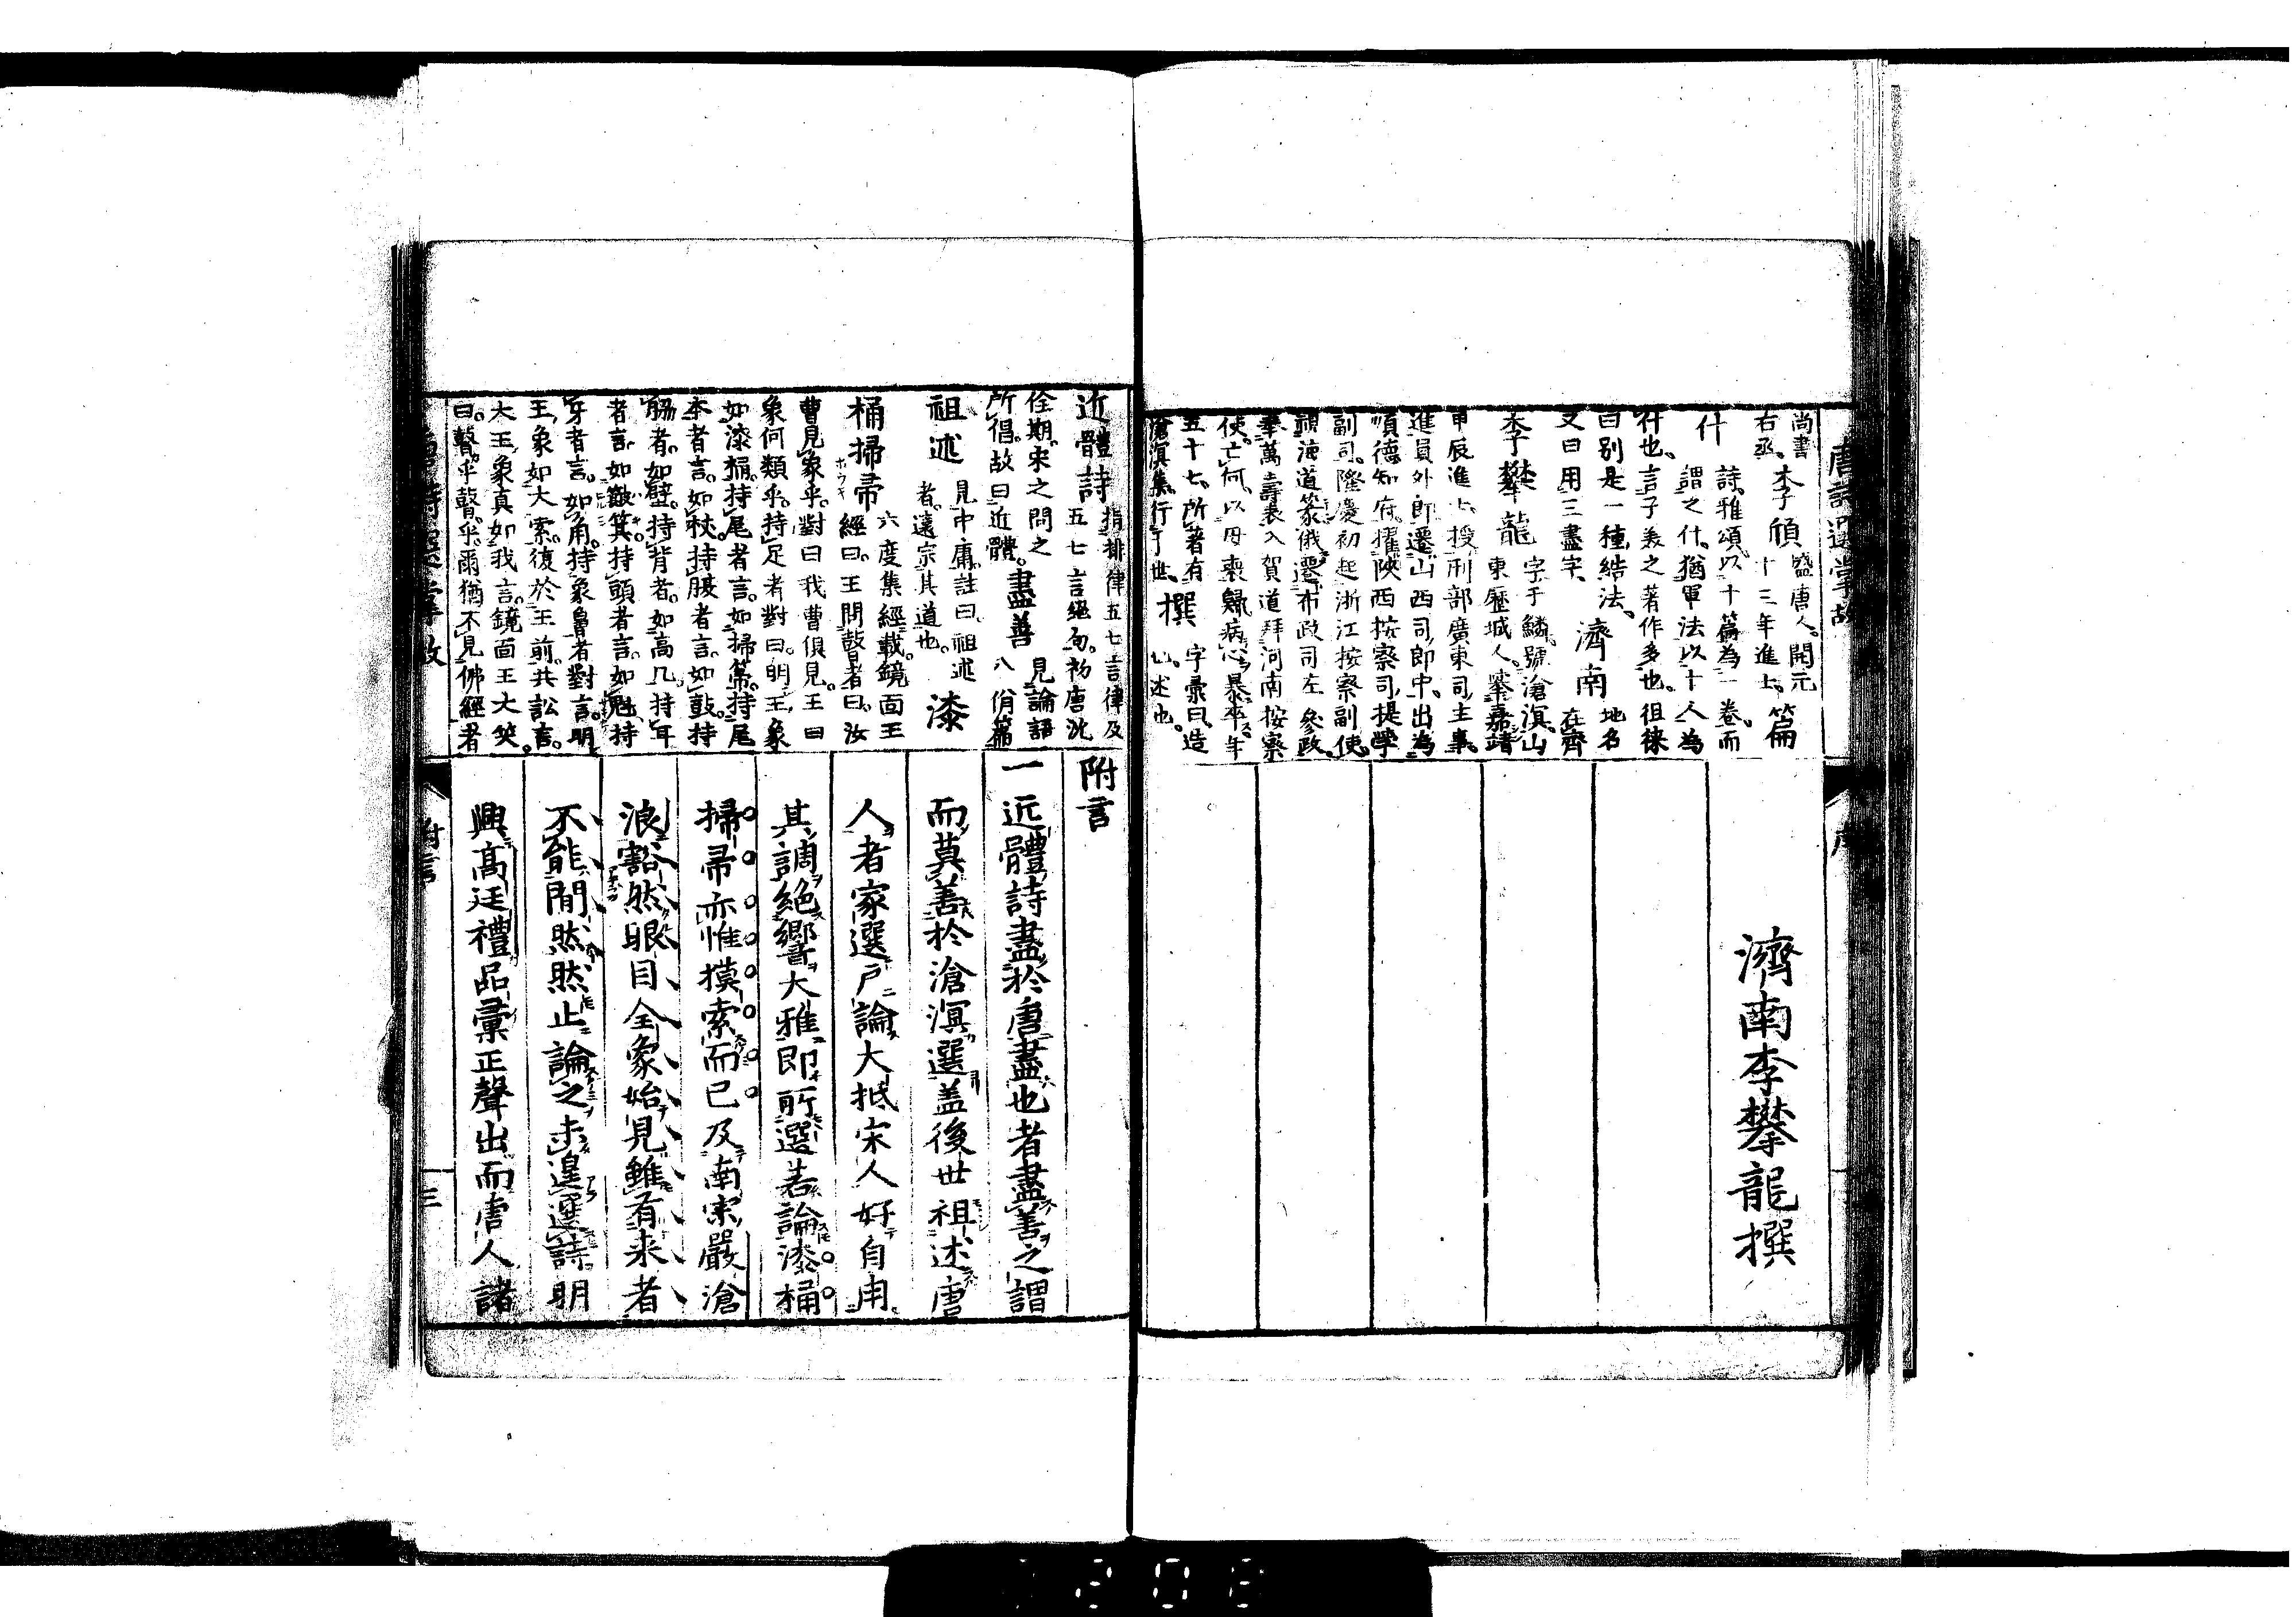 唐詩選掌故
尚書
右丞
李頎
盛唐人開元
十三年進士
篇
什
詩雅頌以十篇為一卷而
謂之什猶軍法以十人為
什也言子美之著作多也徂徠
曰別是一種結法
濟南
地名
在齊
又曰用三盡字
李攀龍
字于鱗號滄溟山
東歷城人舉嘉靖
甲辰進士授刑部廣東司主事
進員外郎遷山西司郎中出為
順德知府擢陝西按察司提學
副司隆慶初起浙江按察副使
視海道篆俄遷布政司左參政
奉萬壽表入賀道拜河南按察
使亡何以母喪歸病心暴卒年
五十七所著有
滄溟集行于世
撰
字彙曰造
也述也
濟南李攀龍撰
序
近體詩
指排律五七言律及
五七言絕句初唐沈
佺期宋之問之
所倡故曰近體
盡善
見論語
八佾篇
祖述
見中庸註曰祖述
者遠宗其道也
漆
桶掃帚
六度集經載鏡面王
經曰王問瞽者曰汝
ホウキ
曹見象乎對曰我曹俱見王曰
象何類乎持足者對曰明王象
如漆桶持尾者言如掃箒持尾
本者言如杖持腹者言如鼓持
脇者如壁持背者如高几持耳
者言如簸箕持頭者言如魁持
牙者言如角持象鼻者對言明
王象如大索復於王前共訟言
大王象真如我言鏡面王大笑
曰瞽乎瞽乎爾猶不見佛經者
附言
一近體詩盡於唐盡也者盡善之謂
而莫善於滄溟選蓋後世祖述唐
人者家選戶論大抵宋人好自用
其調絕響大雅即所選若論漆桶
掃帚亦惟摸索而已及南宋嚴滄
浪豁然眼目全象始見雖有来者
不能間然然止論之未遑選詩明
興髙廷禮品彙正聲出而唐人諸
唐詩選掌故
附言
三